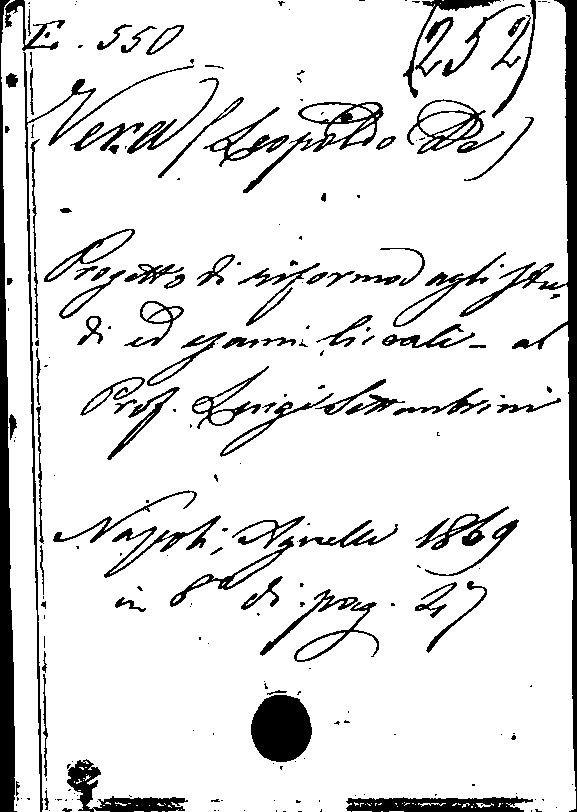 E. 550 (252)
Vera (Leopoldo De)
Progetto di riforma agli stu-
di ed esami liceali - al
Prof. Luigi Settembrini
Napoli, Agnelli 1869
in 8º di pag. 27